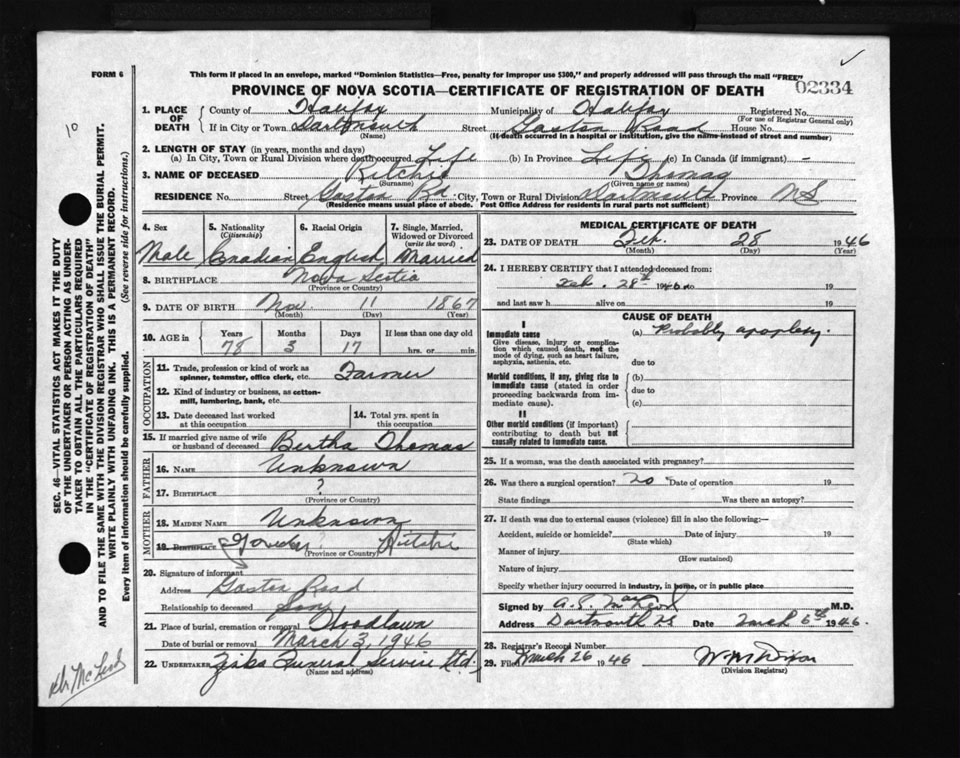 FORM 6
This form if placed in an envelope, marked "Dominion Statistics—Free, penalty for improper use $300," and properly addressed will pass through the mail "FREE"
PROVINCE OF NOVA SCOTIA—CERTIFICATE OF REGISTRATION OF DEATH
02334
10
1. PLACE OF DEATH
County of Halifax Municipality of Halifax Registered No.
(For use of Registrar General only)
If in City or Town Dartmouth Street Gaston Road House No.
(Name) (If death occurred in a hospital or institution, give the name instead of street and number)
2. LENGTH OF STAY (in years, months and days)
(a) In City, Town or Rural Division where death occurred Life (b) In Province Life (c) In Canada (if immigrant) -
3. NAME OF DECEASED Ritchie Thomas
(Surname) (Given name or names)
RESIDENCE No. Street Gaston Rd City, Town or Rural Division Dartmouth Province NS
(Residence means usual place of abode. Post Office Address for residents in rural parts not sufficient)
4. Sex
Male
5. Nationality
(Citizenship)
Canadian
6. Racial Origin
English
7. Single, Married, Widowed or Divorced
(write the word)
Married
8. BIRTHPLACE Nova Scotia
(Province or Country)
9. DATE OF BIRTH Nov. 11 1867
(Month) (Day) (Year)
10. AGE in Years Months Days If less than one day old
78 3 17 hrs. or min.
OCCUPATION
11. Trade, profession or kind of work as spinner, teamster, office clerk, etc. Farmer
12. Kind of industry or business, as cotton-mill, lumbering, bank, etc.
13. Date deceased last worked at this occupation
14. Total yrs. spent in this occupation
15. If married give name of wife or husband of deceased Bertha Thomas
FATHER
16. NAME Unknown
17. BIRTHPLACE ?
(Province or Country)
MOTHER
18. MAIDEN NAME Unknown
19. BIRTHPLACE
(Province or Country)
20. Signature of informant
Address Gaston Road
Relationship to deceased Son
21. Place of burial, cremation or removal Woodlawn
Date of burial or removal March 3, 1946
22. UNDERTAKER Funeral Service Ltd.
(Name and address)
MEDICAL CERTIFICATE OF DEATH
23. DATE OF DEATH Feb. 28 1946
(Month) (Day) (Year)
24. I HEREBY CERTIFY that I attended deceased from:
Feb. 28th 1946 to 19
and last saw h alive on 19
CAUSE OF DEATH
I
Immediate cause
Give disease, injury or complication which caused death, not the mode of dying, such as heart failure, asphyxia, asthenia, etc.
(a) Probably apoplexy.
due to
Morbid conditions, if any, giving rise to immediate cause (stated in order proceeding backwards from immediate cause).
(b)
due to
(c)
II
Other morbid conditions (if important) contributing to death but not causally related to immediate cause.
25. If a woman, was the death associated with pregnancy?
26. Was there a surgical operation? no Date of operation 19
State findings Was there an autopsy?
27. If death was due to external causes (violence) fill in also the following:—
Accident, suicide or homicide? Date of injury 19
(State which)
Manner of injury
(How sustained)
Nature of injury
Specify whether injury occurred in industry, in home, or in public place
Signed by M.D.
Address Dartmouth NS Date March 6th 1946.
28. Registrar's Record Number
29. Filed March 26 1946
(Division Registrar)
SEC. 46—VITAL STATISTICS ACT MAKES IT THE DUTY
OF THE UNDERTAKER OR PERSON ACTING AS UNDER-
TAKER TO OBTAIN ALL THE PARTICULARS REQUIRED
IN THE "CERTIFICATE OF REGISTRATION OF DEATH"
AND TO FILE THE SAME WITH THE DIVISION REGISTRAR WHO SHALL ISSUE THE BURIAL PERMIT.
WRITE PLAINLY WITH UNFADING INK, THIS IS A PERMANENT RECORD.
Every item of information should be carefully supplied. (See reverse side for instructions.)